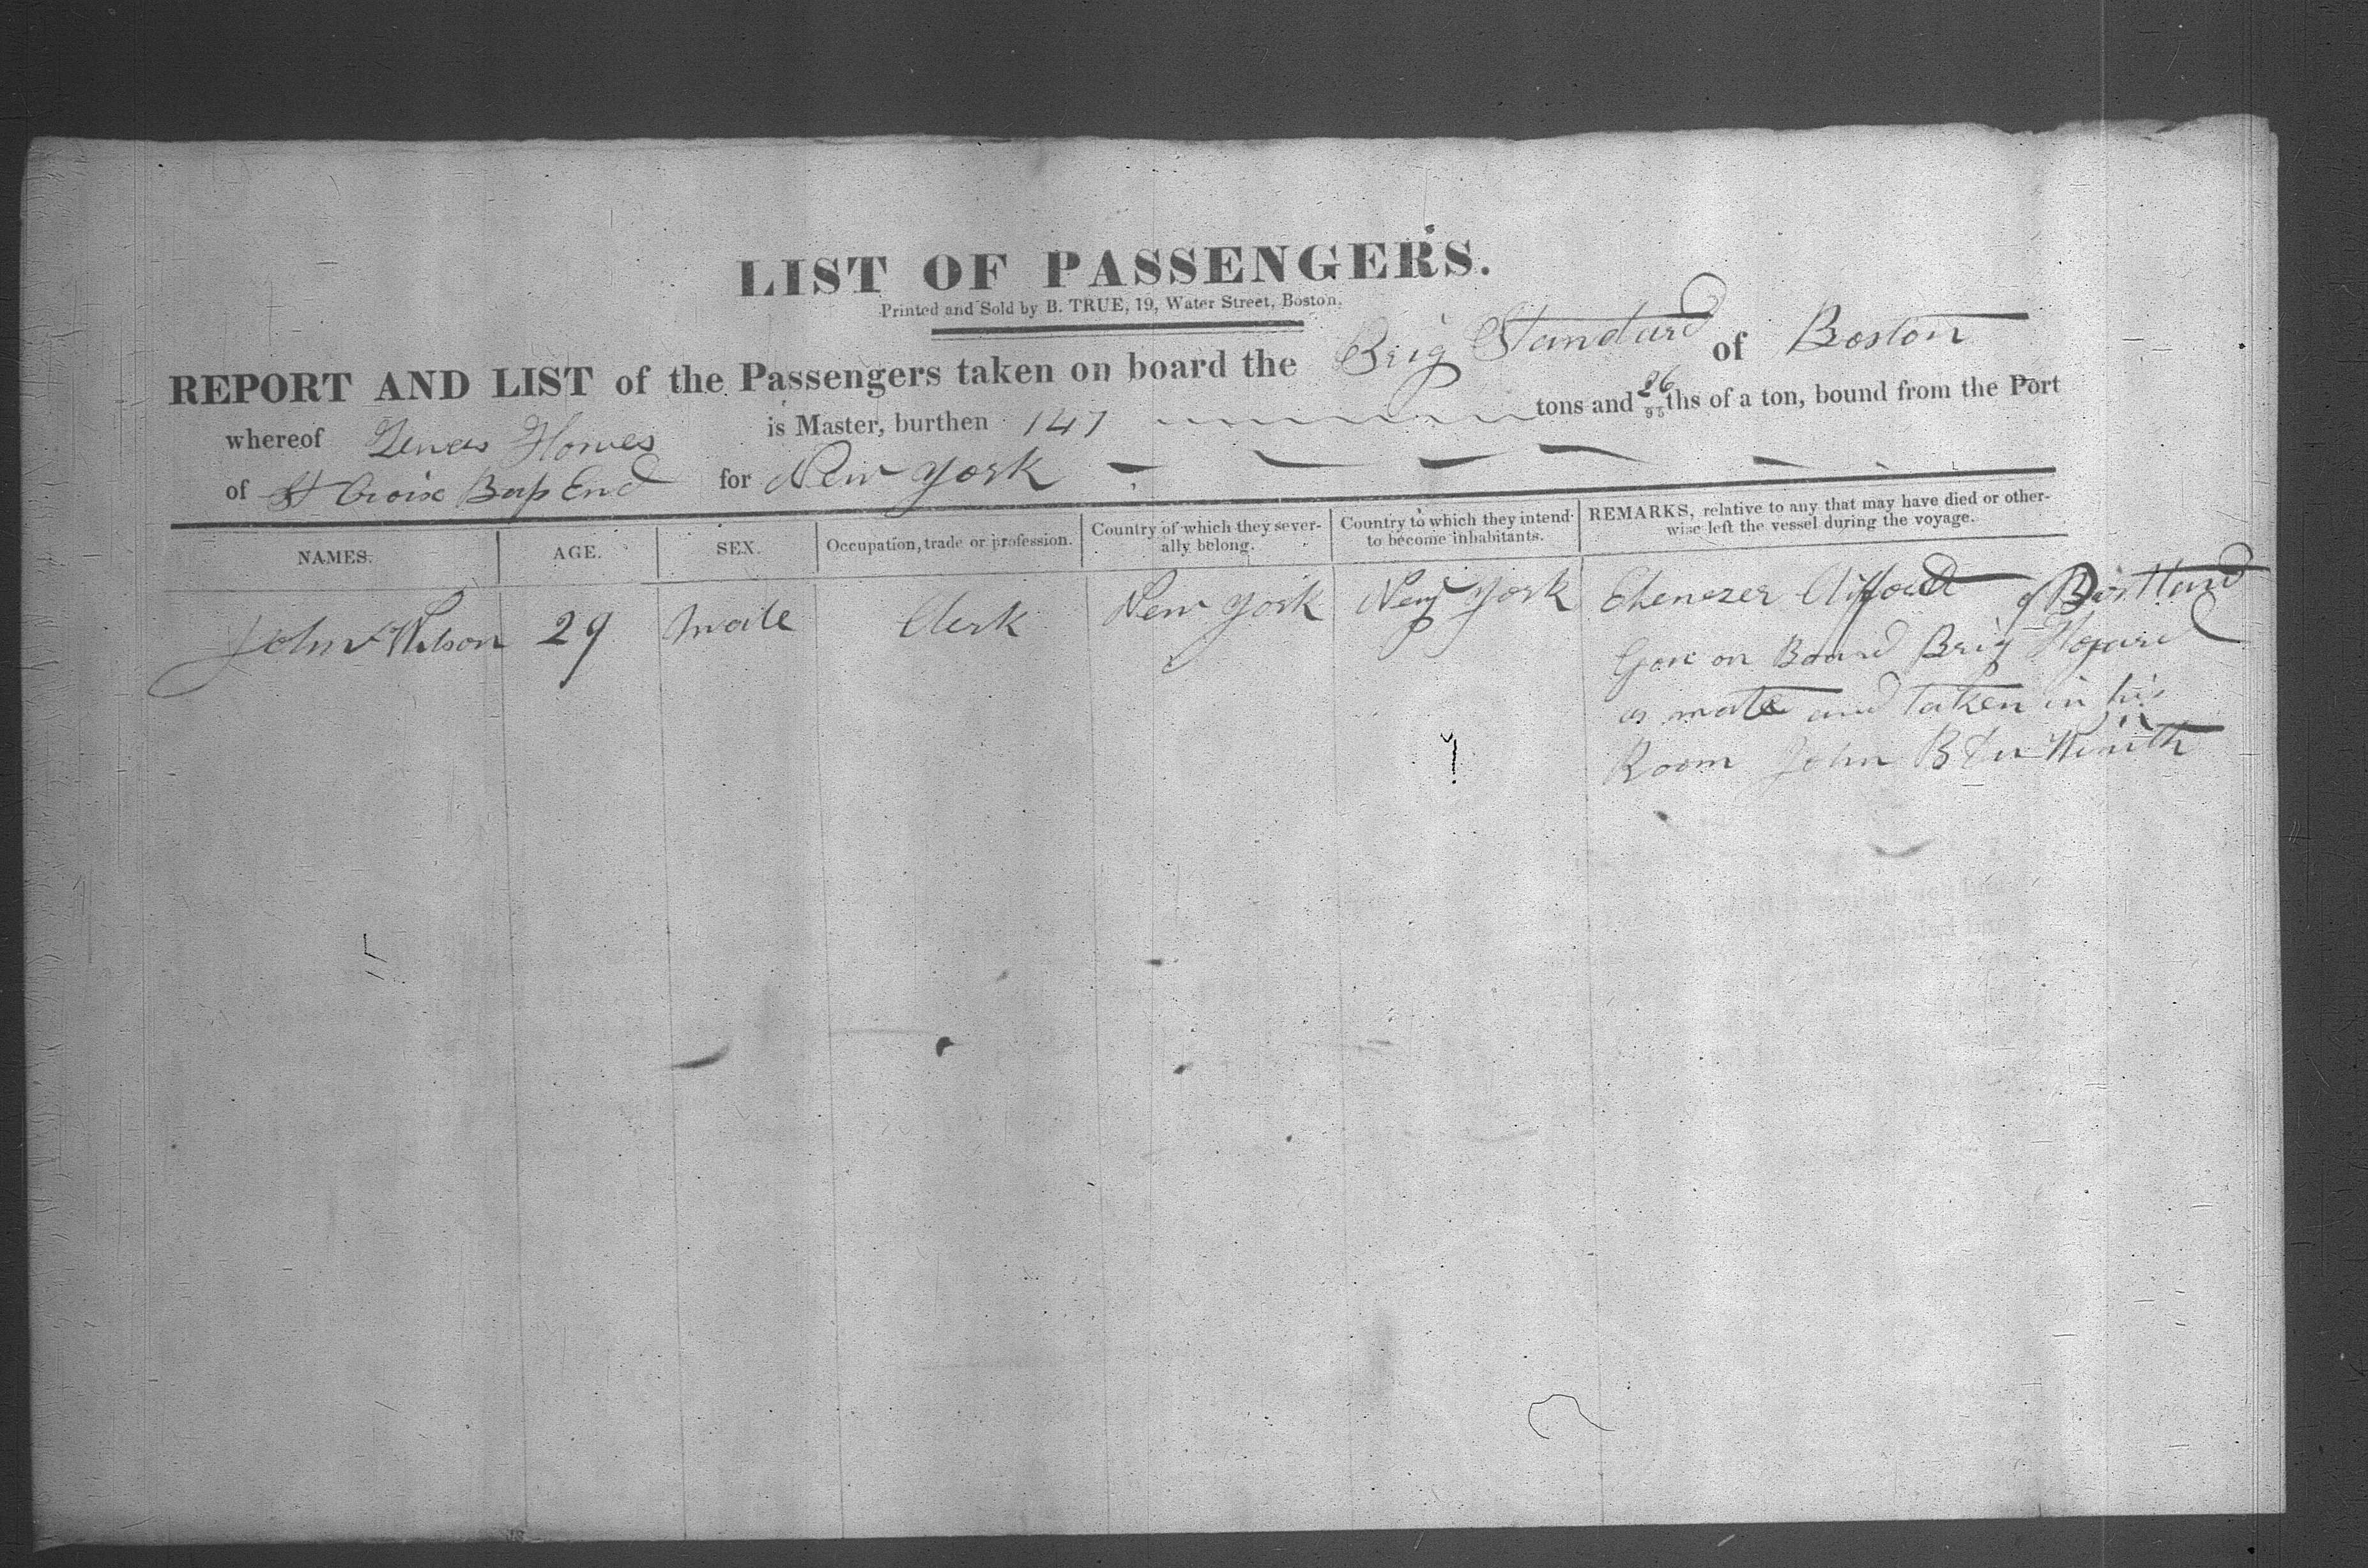 LIST OF PASSENGERS.
Printed and Sold by B. TRUE, 19, Water Street, Boston.
REPORT AND LIST of the Passengers taken on board the Brig Standard of Boston
whereof Howes is Master, burthen 147 tons and 26/95ths of a ton, bound from the Port
of St Croix End for New York
NAMES. AGE. SEX. Occupation, trade or profession. Country of which they severally belong. Country to which they intend to become inhabitants. REMARKS, relative to any that may have died or otherwise left the vessel during the voyage.
John Wilson 29 male Clerk New York New York Ebenezer Clifford of Portland
Gon on Board Brig
as mate and taken in his
Room John B